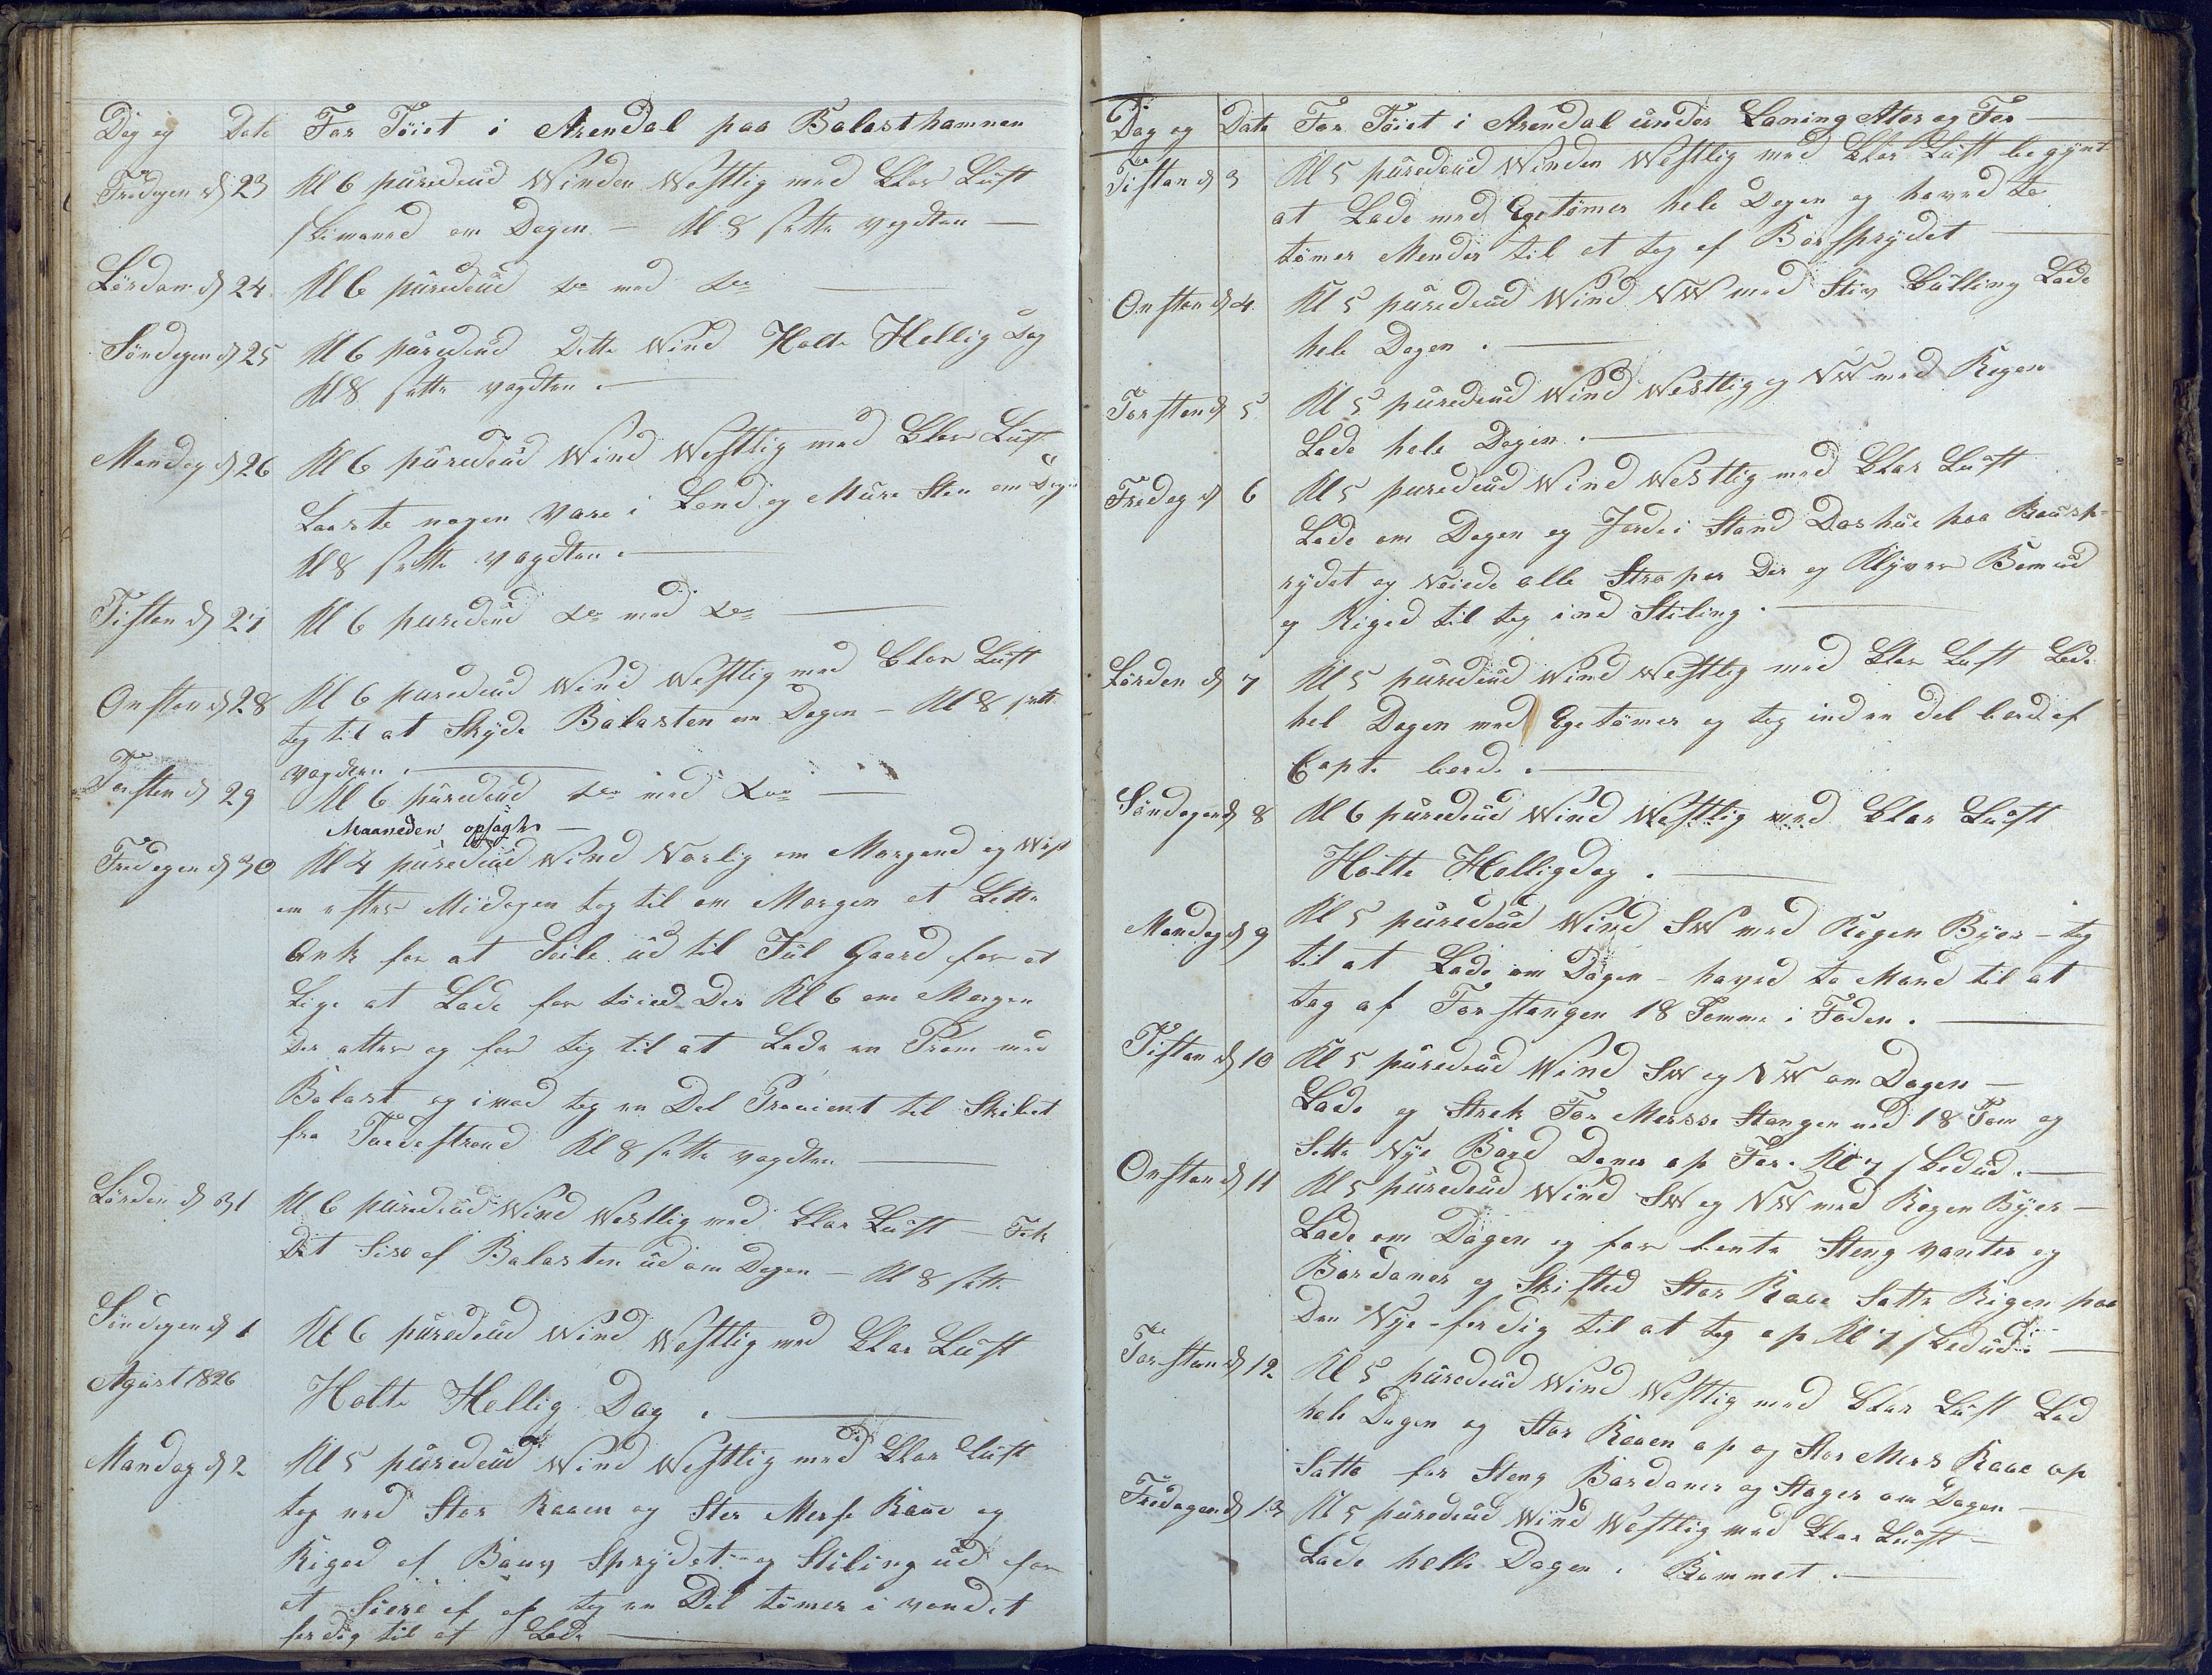 Dag og Dato For Töiet i Arendal paa Balasthamnen
Fredagen d 23 Kl 6 püredeüd Winden Westlig med Klar Lüft
skimaned om Dagen — Kl 8 sette vagdten —
Lördan d 24 Kl 6 püredeüd do med do —
Söndagen d 25 Kl 6 püredeüd Dette Wind Holte Hellig Dag
Kl 8 sette vagdten . —
Mandag d 26 Kl 6 püredeüd Wind Westlig med Klar Lüft
Laaste nogen Vare i Land og Müre Sten om Dagen
Kl 8 sette vagdten . —
Tistan d 27 Kl 6 püredeüd do med do —
Onstan d 28 Kl 6 püredeüd Wind Westlig med Klar Lüft
tog til at Skyde Balasten om Dagen — Kl 8 sette
vagdten . —
Torsten d 29 Kl 6 püredeüd do med do —
Maaneden opsagt —
Fredagen d 30 Kl 4 püredeüd Wind Norlig om Morgend og West
om efter Midagen tog til om Morgen at Lette
Ank for at Seile üd til Jül Gaard for at
Lige at Lade for töied Der Kl 6 om Morgen
Der atter og for tog til at Lade en Pram med
Balast og imod tog en Del Provient til Skibet
fra Tvedestrand Kl 8 sette vagdten —
Lördan d 31 Kl 6 püredeüd Wind Westlig med Klar Lüft — Fik
Dit Siste af Balasten üd om Dagen — Kl 8 sette
Söndagen d 1 Kl 6 püredeüd Wind Westlig med Klar Lüft
Agüst 1826 Holte Hellig Dag . —
Mandag d 2 Kl 5 püredeüd Wind Westlig med Klar Lüft
tog ned Stor Raaen og Stor Merse Raae og
Riged af Baüg Sprydet og Stiling üd for
at af tog en Del tömer i vandet
ferdig til at Lade —
Dag og Dato For Töiet i Arendal ünder Laning Ater og For —
Tistan d 3 Kl 5 püredeüd Winden Westlig med Klar Lüft begynt
at Lade med Egetömer hele Dagen og haved to
tömer Mender til at tag af Börsprydet —
Onstan d 4 Kl 5 püredeüd Wind NW med Stiv Külling Lade
hele Dagen . —
Torstan d 5 Kl 5 püredeüd Wind Westlig og NW med Regen
Lade hele Dagen . —
Fredag d 6 Kl 5 püredeüd Wind Westlig med Klar Lüft
Lade om Dagen og Jorde i Stand Doshüe paa Baüsp-
rydet og Veiede alle Straper Der og Klyver Bom üd
og Riged til tog ind Stiling . —
Lörden d 7 Kl 5 püredeüd Wind Westlig med Klar Lüft Lade
hel Dagen med Egetömer og tog ind en del bord af
Capt. bord . —
Söndagen d 8 Kl 6 püredeüd Wind Westlig med Klar Lüft
Holte Helligdag . —
Mandag d 9 Kl 5 püredeüd Wind SW med Regen Byer — tog
til at Lade om Dagen — haved to Mand til at
tag af For stangen 18 Tomme i Foden . —
Tistan d 10 Kl 5 püredeüd Wind SW og NW om Dagen —
Lade og Strek For Mersse Stangen ned 18 Tom og
Sette Nye Bard Dones op For . Kl 7 skedüd . —
Onstan d 11 Kl 5 püredeüd Wind SW og NW med Regen Byer —
Lade om Dagen og for bente Steng vanter og
Bardones og Skifted Stor Raae Satte Rigen paa
Den Nye ferdig til at tog op Kl 7 skedüd —
Torstan d 12 Kl 5 püredeüd Wind Westlig med Klar Lüft Lad
hele Dagen og Stor Raaen op og Stor Mers Raae op
Satte for Steng Bardoner og Stager om Dagen —
Fredagen d 13 Kl 5 püredeüd Wind Westlig med Klar Lüft —
Lade helle Dagen i Rommet . —